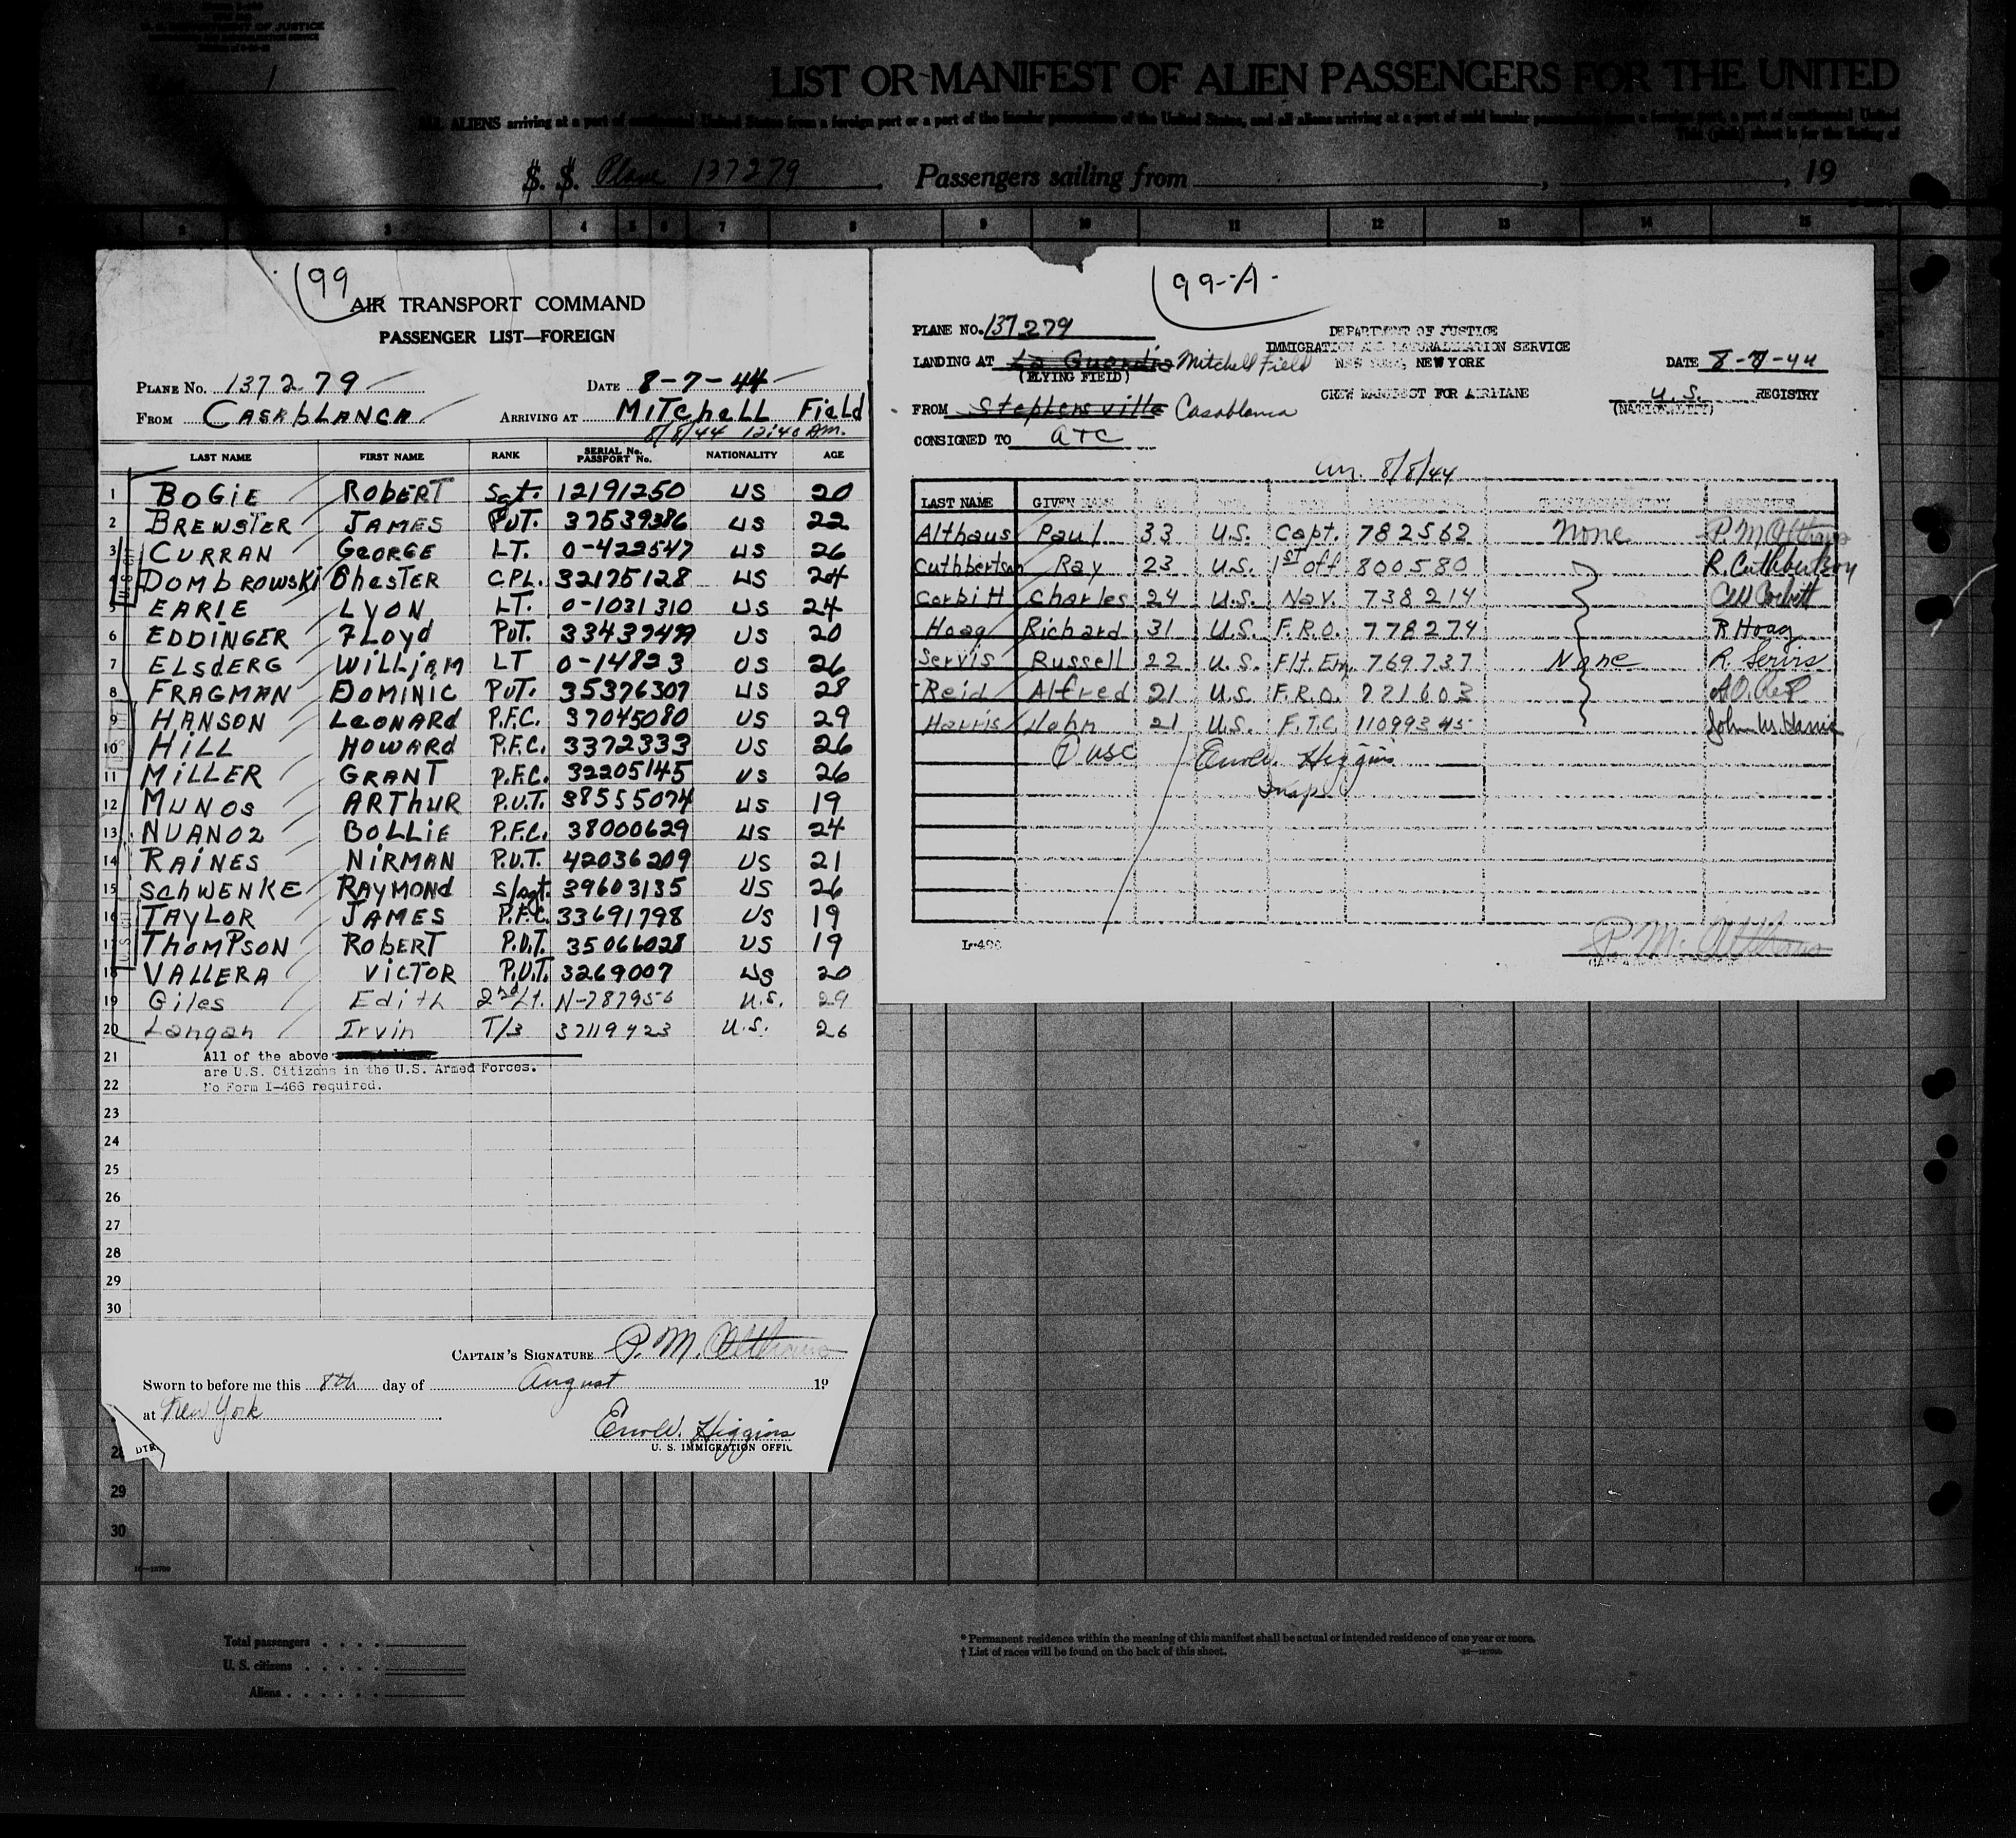 U. S. DEPARTMENT OF JUSTICE
1
LIST OR MANIFEST OF ALIEN PASSENGERS FOR THE UNITED
ALL ALIENS arriving at a port of continental United States from a foreign port or a port of the insular possessions of the United States, and all aliens arriving at a port of said insular possessions from a foreign port, a port of continental United
This (pink) sheet is for the listing of
S. S. Plane 137279 Passengers sailing from , , 19
2 3 4 5 6 7 8 9 10 11 12 13 14 15
99
AIR TRANSPORT COMMAND
PASSENGER LIST—FOREIGN
PLANE NO. 137279 DATE 8-7-44
FROM CASABLANCA ARRIVING AT MITCHELL FIELD
8/8/44 12:40 AM.
LAST NAME FIRST NAME RANK SERIAL NO. PASSPORT NO. NATIONALITY AGE
1 BOGIE ROBERT Sgt. 12191250 US 20
2 BREWSTER JAMES PVT. 37539386 US 22
3 CURRAN GEORGE LT. 0-422547 US 26
4 DOMBROWSKI CHESTER CPL. 32175128 US 24
5 EARIE LYON LT. 0-1031310 US 24
6 EDDINGER FLOYD PVT. US 20
7 ELSDERG WILLIAM LT 0-14823 US 26
8 FRAGMAN DOMINIC PVT. 35376307 US 28
9 HANSON LEONARD P.F.C. 37045080 US 29
10 HILL HOWARD P.F.C. 3372333 US 26
11 MILLER GRANT P.F.C. 32205145 US 26
12 MUNOS ARTHUR P.V.T. 38555074 US 19
13 NUANOZ BOLLIE P.F.C. 38000629 US 24
14 RAINES NIRMAN P.V.T. 42036209 US 21
15 SCHWENKE RAYMOND S/sgt. 39603135 US 26
16 TAYLOR JAMES P.F.C. 33691798 US 19
17 THOMPSON ROBERT P.V.T. 35066028 US 19
18 VALLERA VICTOR P.V.T. 3269007 US 20
19 Giles Edith 2nd Lt. N-787956 U.S. 29
20 Langan Irvin T/3 37119423 U.S. 26
21 All of the above
are U.S. Citizens in the U.S. Armed Forces.
22 No Form I-466 required.
23
24
25
26
27
28
29
30
CAPTAIN'S SIGNATURE P. M. Althaus
Sworn to before me this 8th day of August 19
at New York
Higgins
U. S. IMMIGRATION OFFIC
DTR
99-A-
PLANE NO. 137279 DEPARTMENT OF JUSTICE
IMMIGRATION AND NATURALIZATION SERVICE
LANDING AT La Guardia Mitchell Field NEW YORK, NEW YORK DATE 8-7-44
(FLYING FIELD)
CREW MANIFEST FOR AIRPLANE U.S. REGISTRY
(NATIONALITY)
FROM Stephensville Casablanca
CONSIGNED TO ATC
arr. 8/8/44
LAST NAME GIVEN NAME
Althaus Paul 33 U.S. Capt. 782562 None P. M. Althaus
Cuthbertson Ray 23 U.S. 1st off 800580 R. Cuthbertson
Corbitt Charles 24 U.S. Nav. 738214 CW Corbitt
Hoag Richard 31 U.S. F.R.O. 778274 R Hoag
Servis Russell 22 U.S. Flt. En. 769737 None R. Servis
Reid Alfred 21 U.S. F.R.O. 721603
Harris John 21 U.S. F.T.C. 11099345 John M. Harris
7 usc Higgins
Insp
I-466
P. M. Althaus
28
29
30
16—13700
Total passengers
U. S. citizens
Aliens
* Permanent residence within the meaning of this manifest shall be actual or intended residence of one year or more.
† List of races will be found on the back of this sheet.